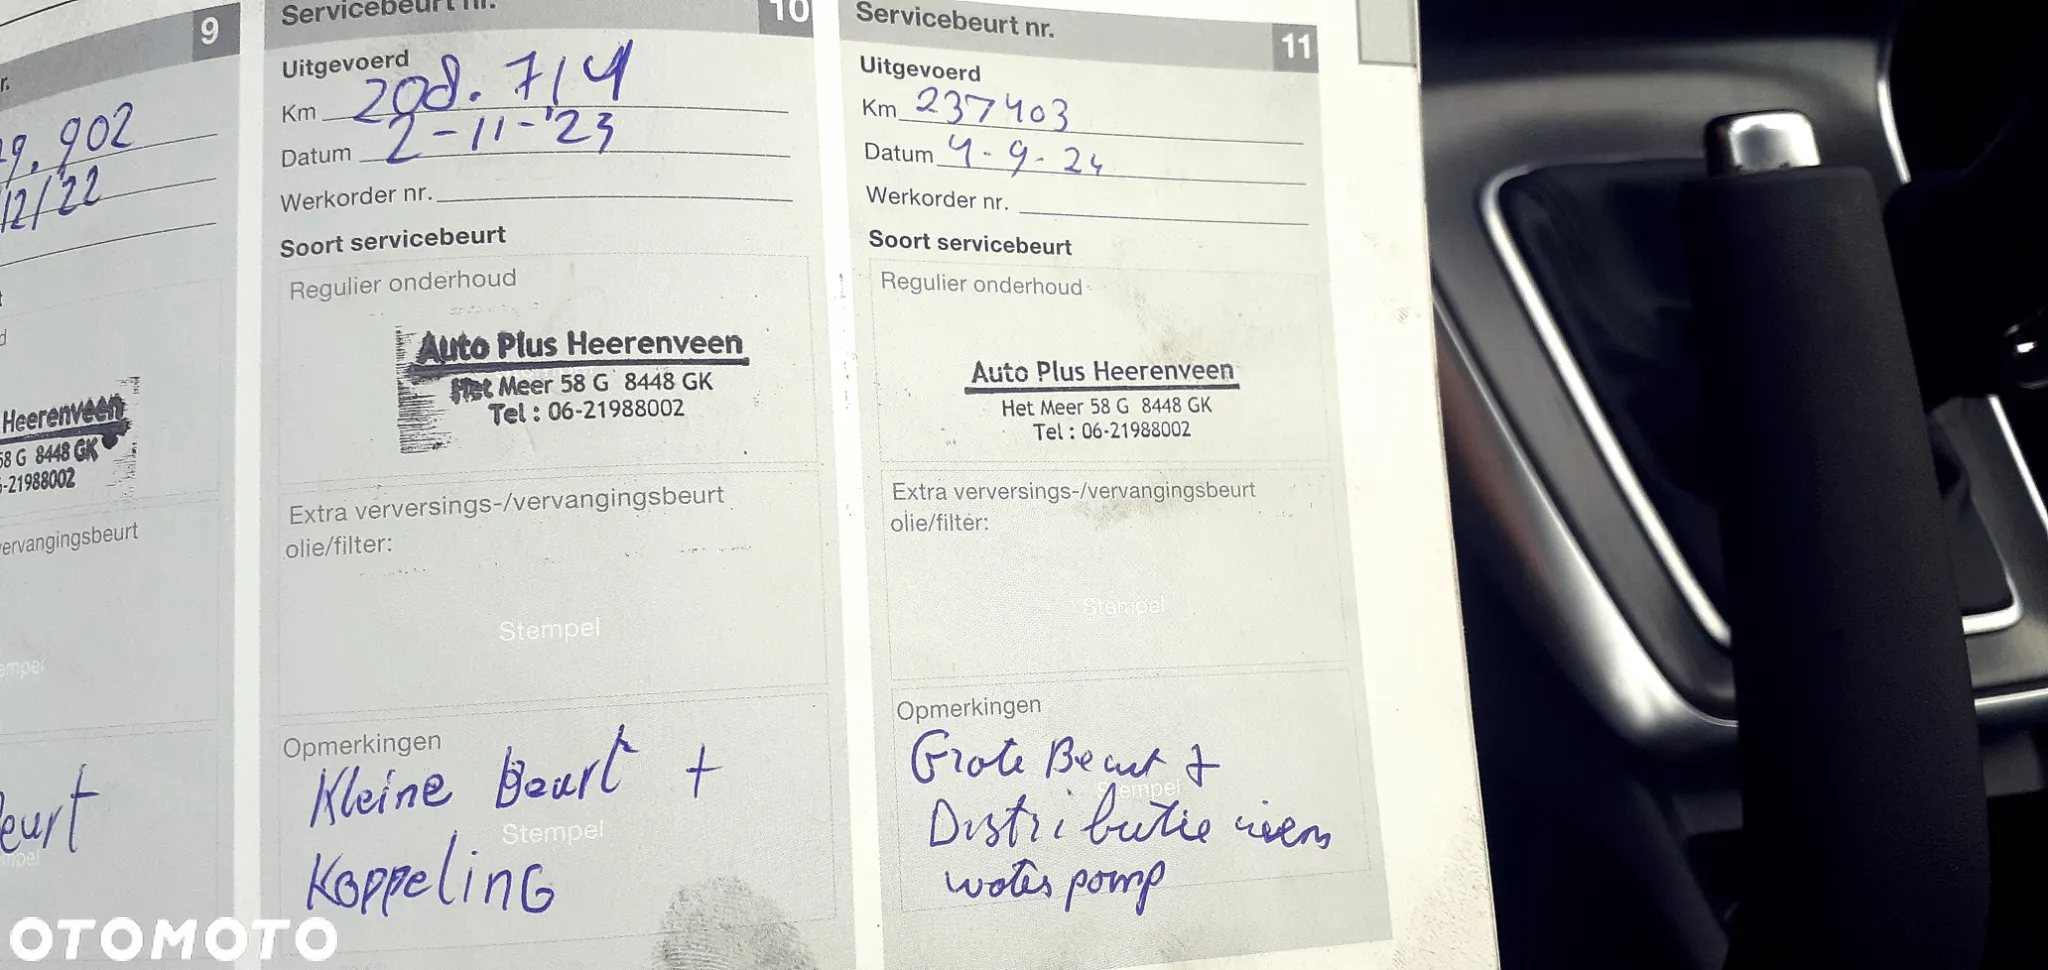 9
r.
9.902
12/22
d
Heerenveen
58 G 8448 GK
-21988002
ervangingsbeurt
empel
eurt
mpel
Servicebeurt nr. 10
Uitgevoerd
Km 208.714
Datum 2-11-'23
Werkorder nr.
Soort servicebeurt
Regulier onderhoud
Auto Plus Heerenveen
Het Meer 58 G 8448 GK
Tel : 06-21988002
Extra verversings-/vervangingsbeurt
olie/filter:
Stempel
Opmerkingen
Kleine Beurt +
Stempel
Koppeling
Servicebeurt nr. 11
Uitgevoerd
Km 237403
Datum 4-9-24
Werkorder nr.
Soort servicebeurt
Regulier onderhoud
Auto Plus Heerenveen
Het Meer 58 G 8448 GK
Tel : 06-21988002
Extra verversings-/vervangingsbeurt
olie/filter:
Stempel
Opmerkingen
Grote Beurt +
Stempel
Distributie riem
waterpomp
OTOMOTO